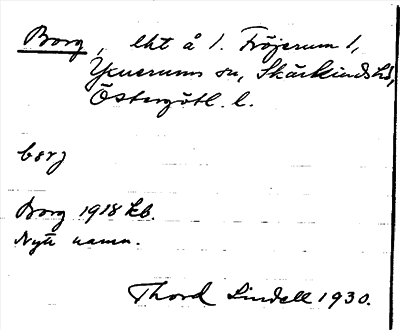 Borg, lht å 1. Fröjerum 1,
Yxnerums sn, Skärkinds hd,
Östergötl. l.
borj
Borg 1918 kb.
Nytt namn.
Thord Lindell 1930.